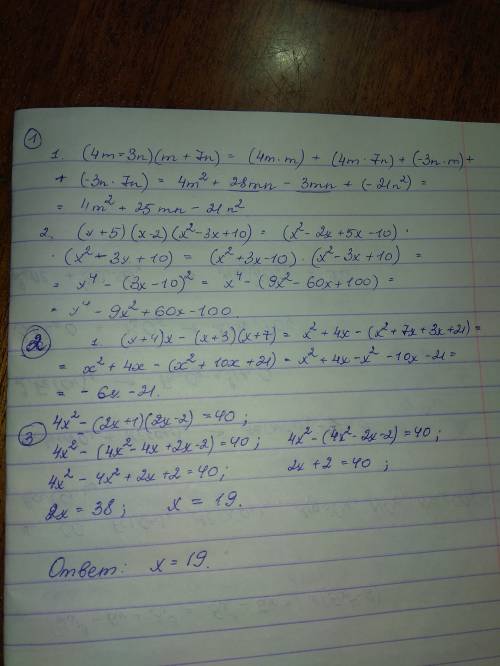 1
1. (4m-3n)(m+7n) = (4m·m) + (4m·7n)+(-3n·m)+
+ (-3n·7n) = 4m² + 28mn - 3mn + (-21n²) =
= 4m² + 25mn - 21n²
2. (x+5)(x-2)(x²-3x+10) = (x²-2x+5x-10)·
·(x²-3x+10) = (x²+3x-10)·(x²-3x+10) =
= x⁴ - (3x-10)² = x⁴ - (9x²-60x+100) =
= x⁴ - 9x² + 60x - 100.
2 1. (x+4)x - (x+3)(x+7) = x²+4x-(x²+7x+3x+21)=
= x²+4x-(x²+10x+21) = x²+4x-x²-10x-21=
= -6x-21.
3 4x²-(2x+1)(2x-2)=40;
4x²-(4x²-4x+2x-2)=40; 4x²-(4x²-2x-2)=40;
4x²-4x²+2x+2=40; 2x+2=40;
2x=38; x=19.
Ответ: x=19.